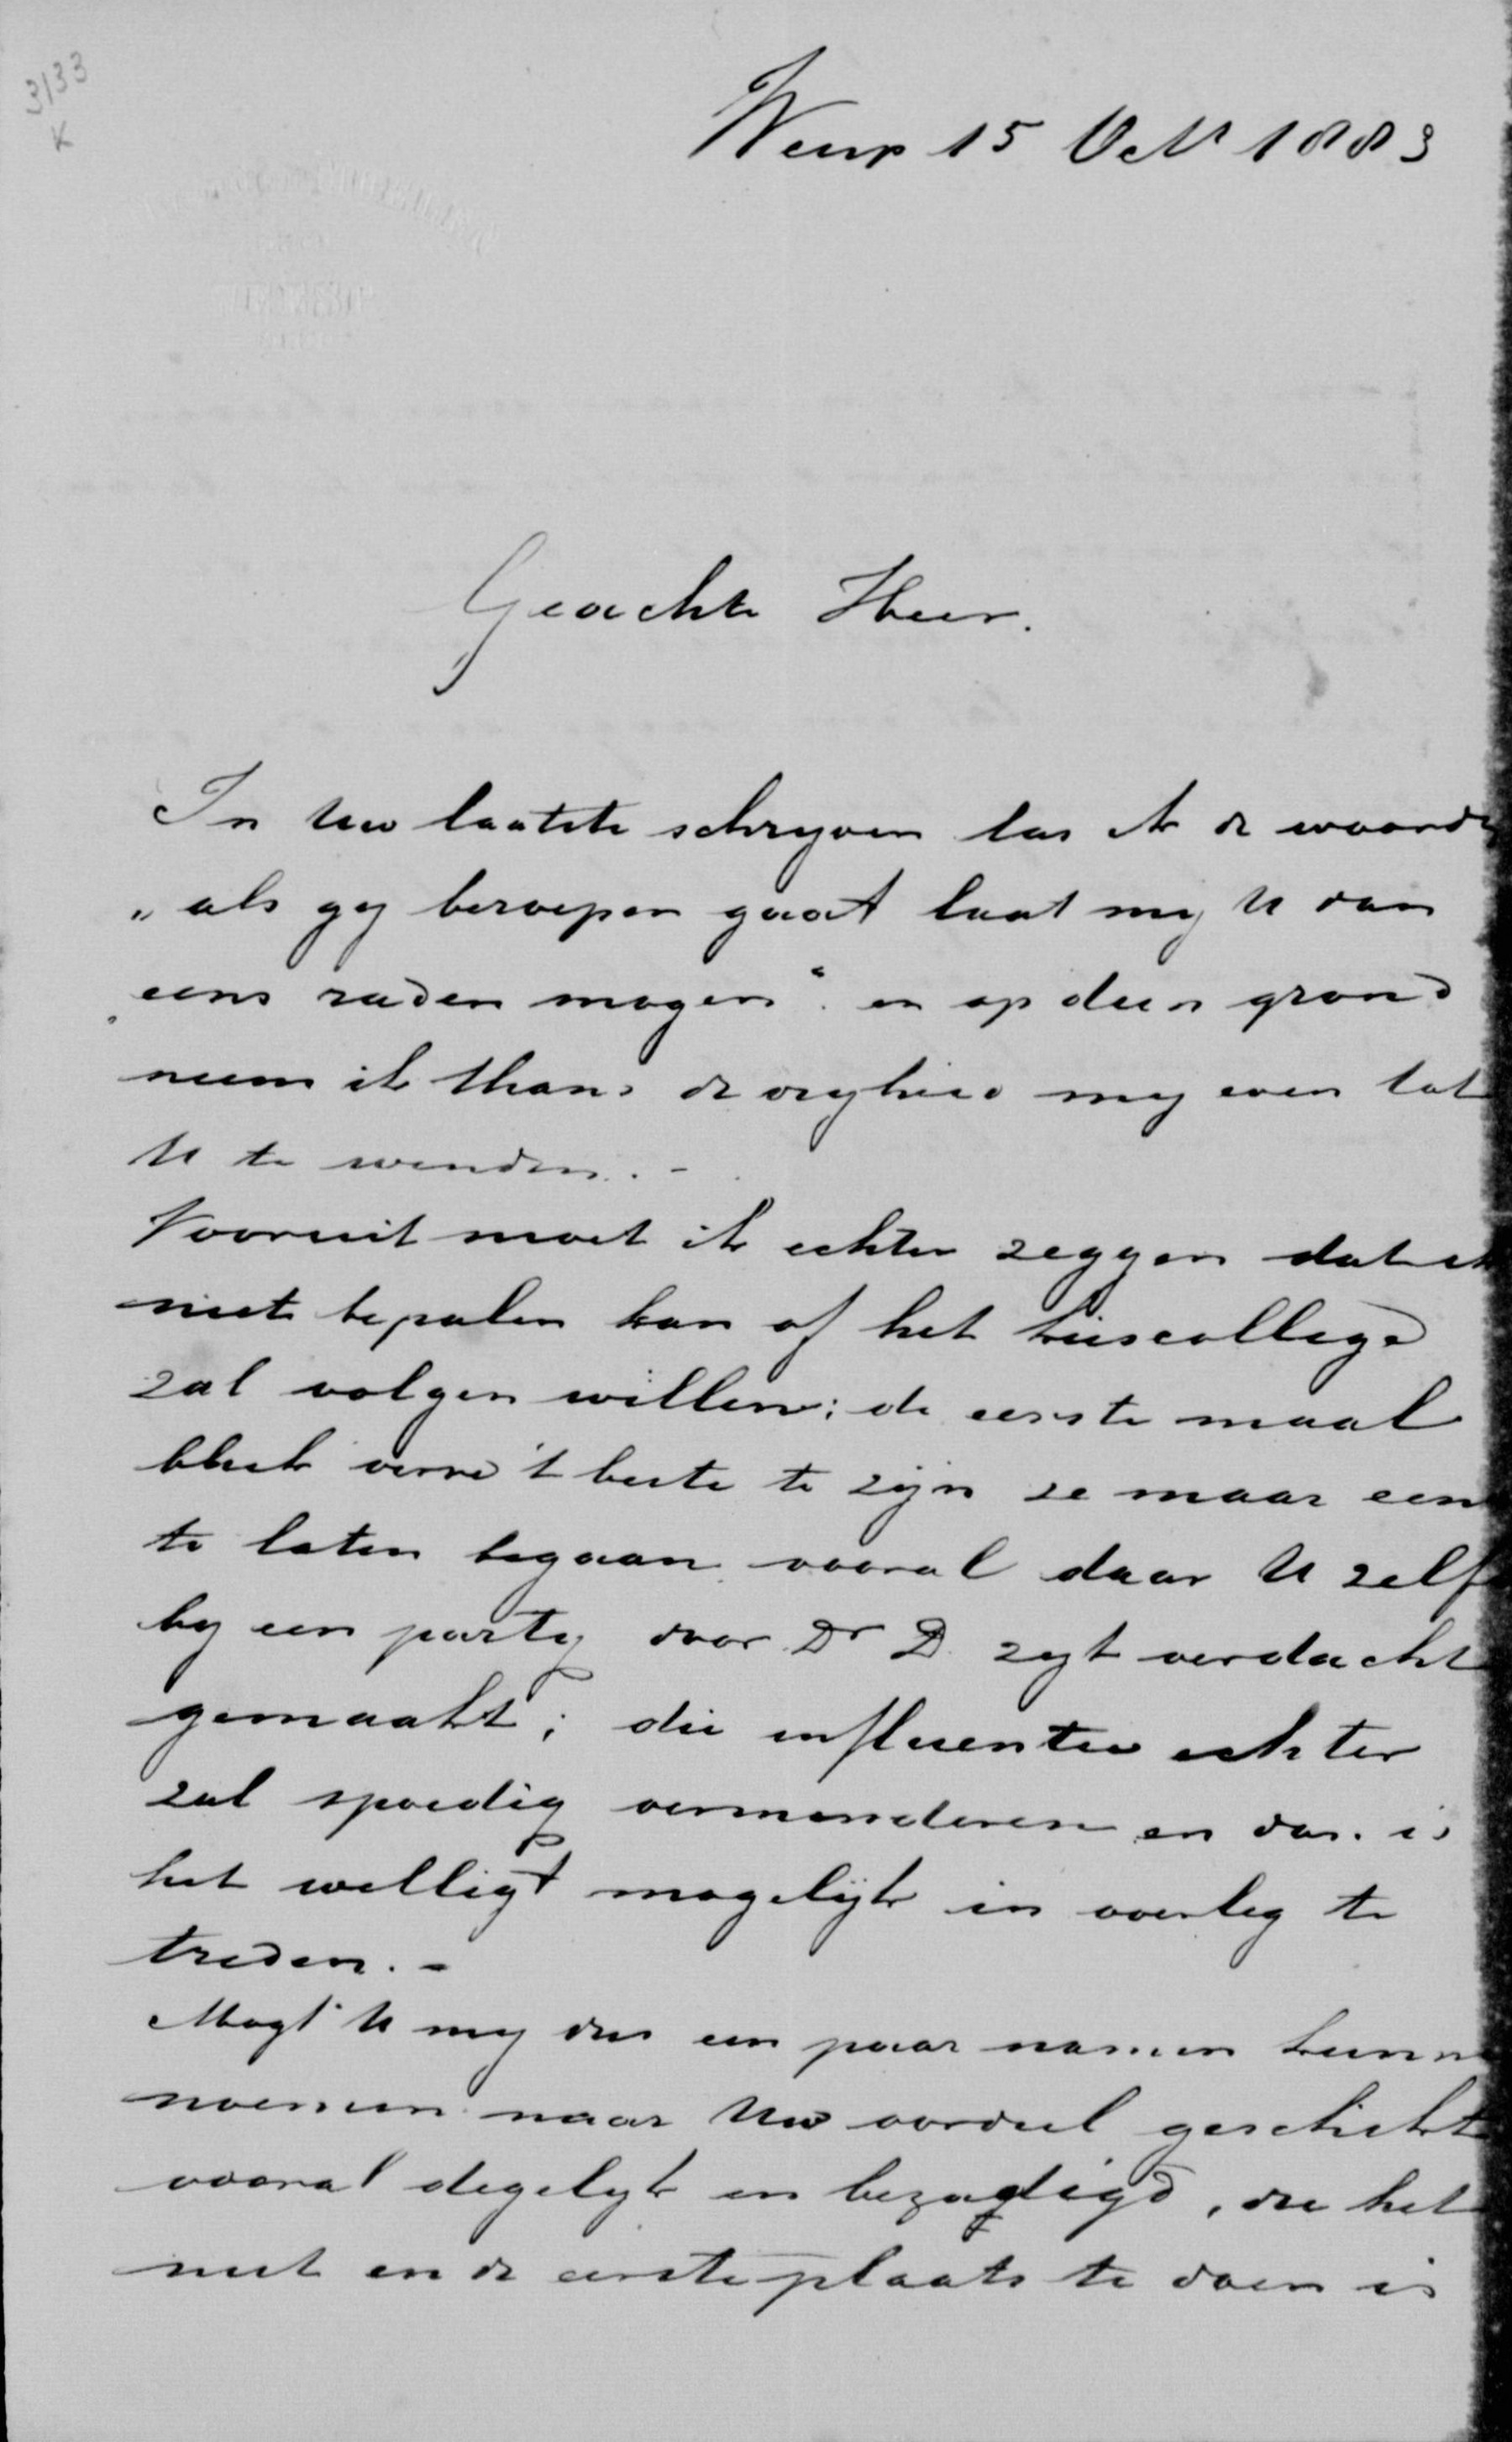 3133
K
Weesp 15 Oct 1883
Geachte Heer.
In Uw laatste schryven las ik de woorden
„als gy beroepen gaat laat my U dan
„eens raden mogen“. en op dien grond
neem ik thans de vryheid my even tot
U te wenden. -
Vooruit moet ik echter zeggen dat ik
niet bepalen kan of het kiescollege
zal volgen willen; de eerste maal
bleek verre 't beste te zijn ze maar eens
te laten begaan vooral daar U zelf
by een party door Dr D. zyt verdacht
gemaakt; die influentie echter
zal spoedig verminderen en dan is
het welligt mogelijk in overleg te
treden. -
Mogt U my dus een paar namen kunnen
noemen naar Uw oordeel geschikt
vooral degelyk en bezadigd, die het
niet in de eerste plaats te doen is